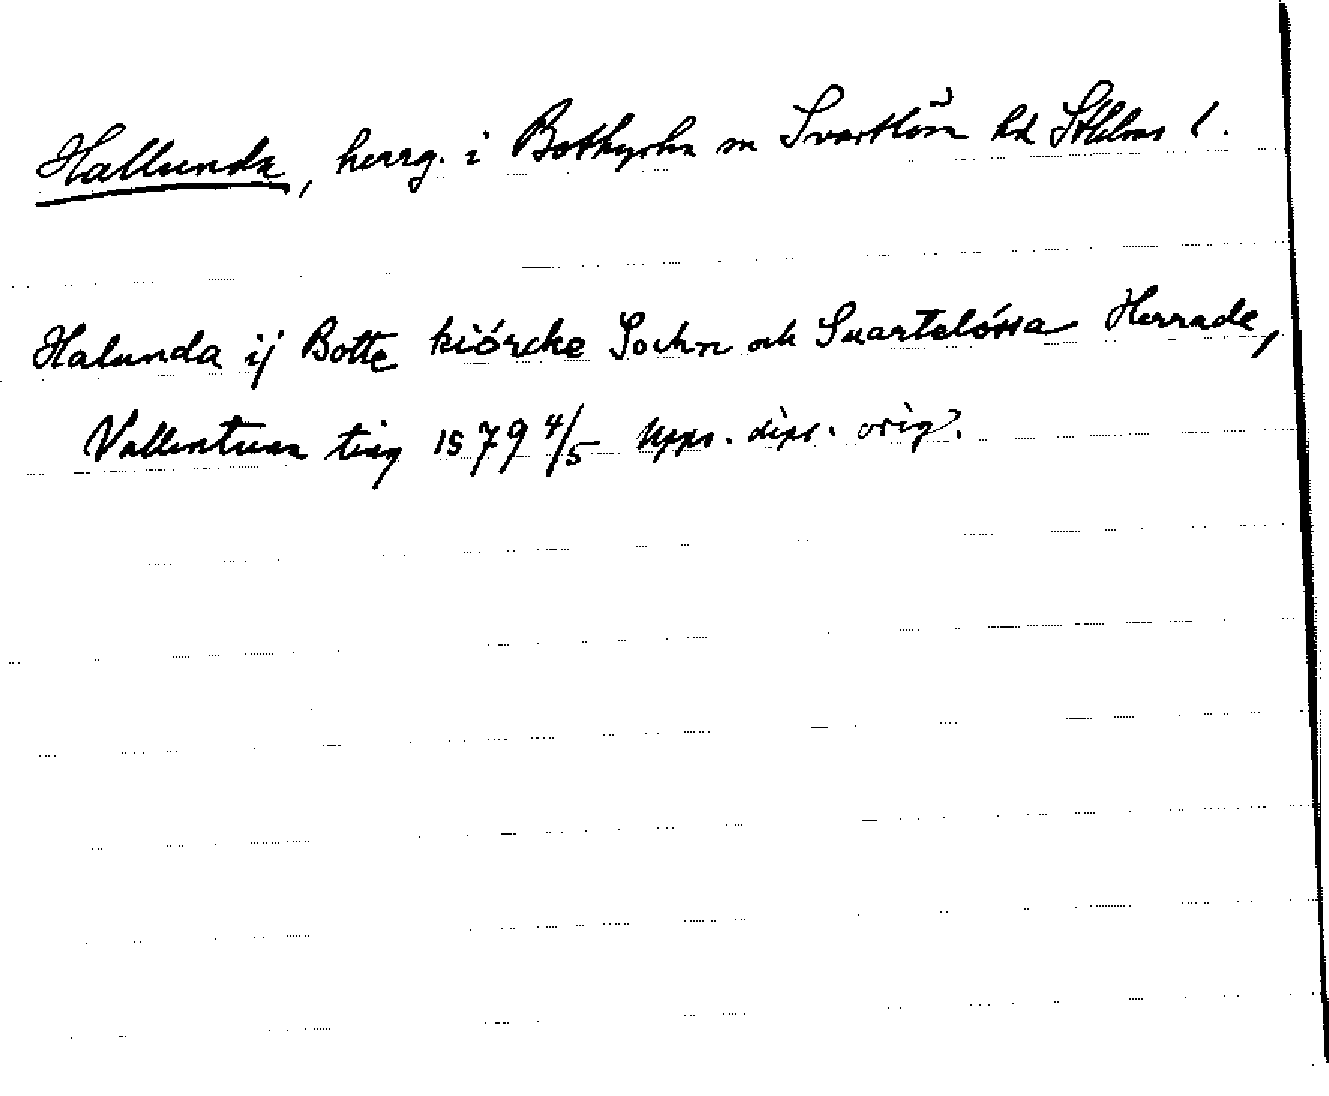 Hallunda, herrg. i Botkyrka sn Svartlösa hd Sthlms l.
Halunda ij Botte kiórcke Sochn och Suartelóssa Herrade,
Vallentuna ting 1579 4/5 Upps. dipl. orig.